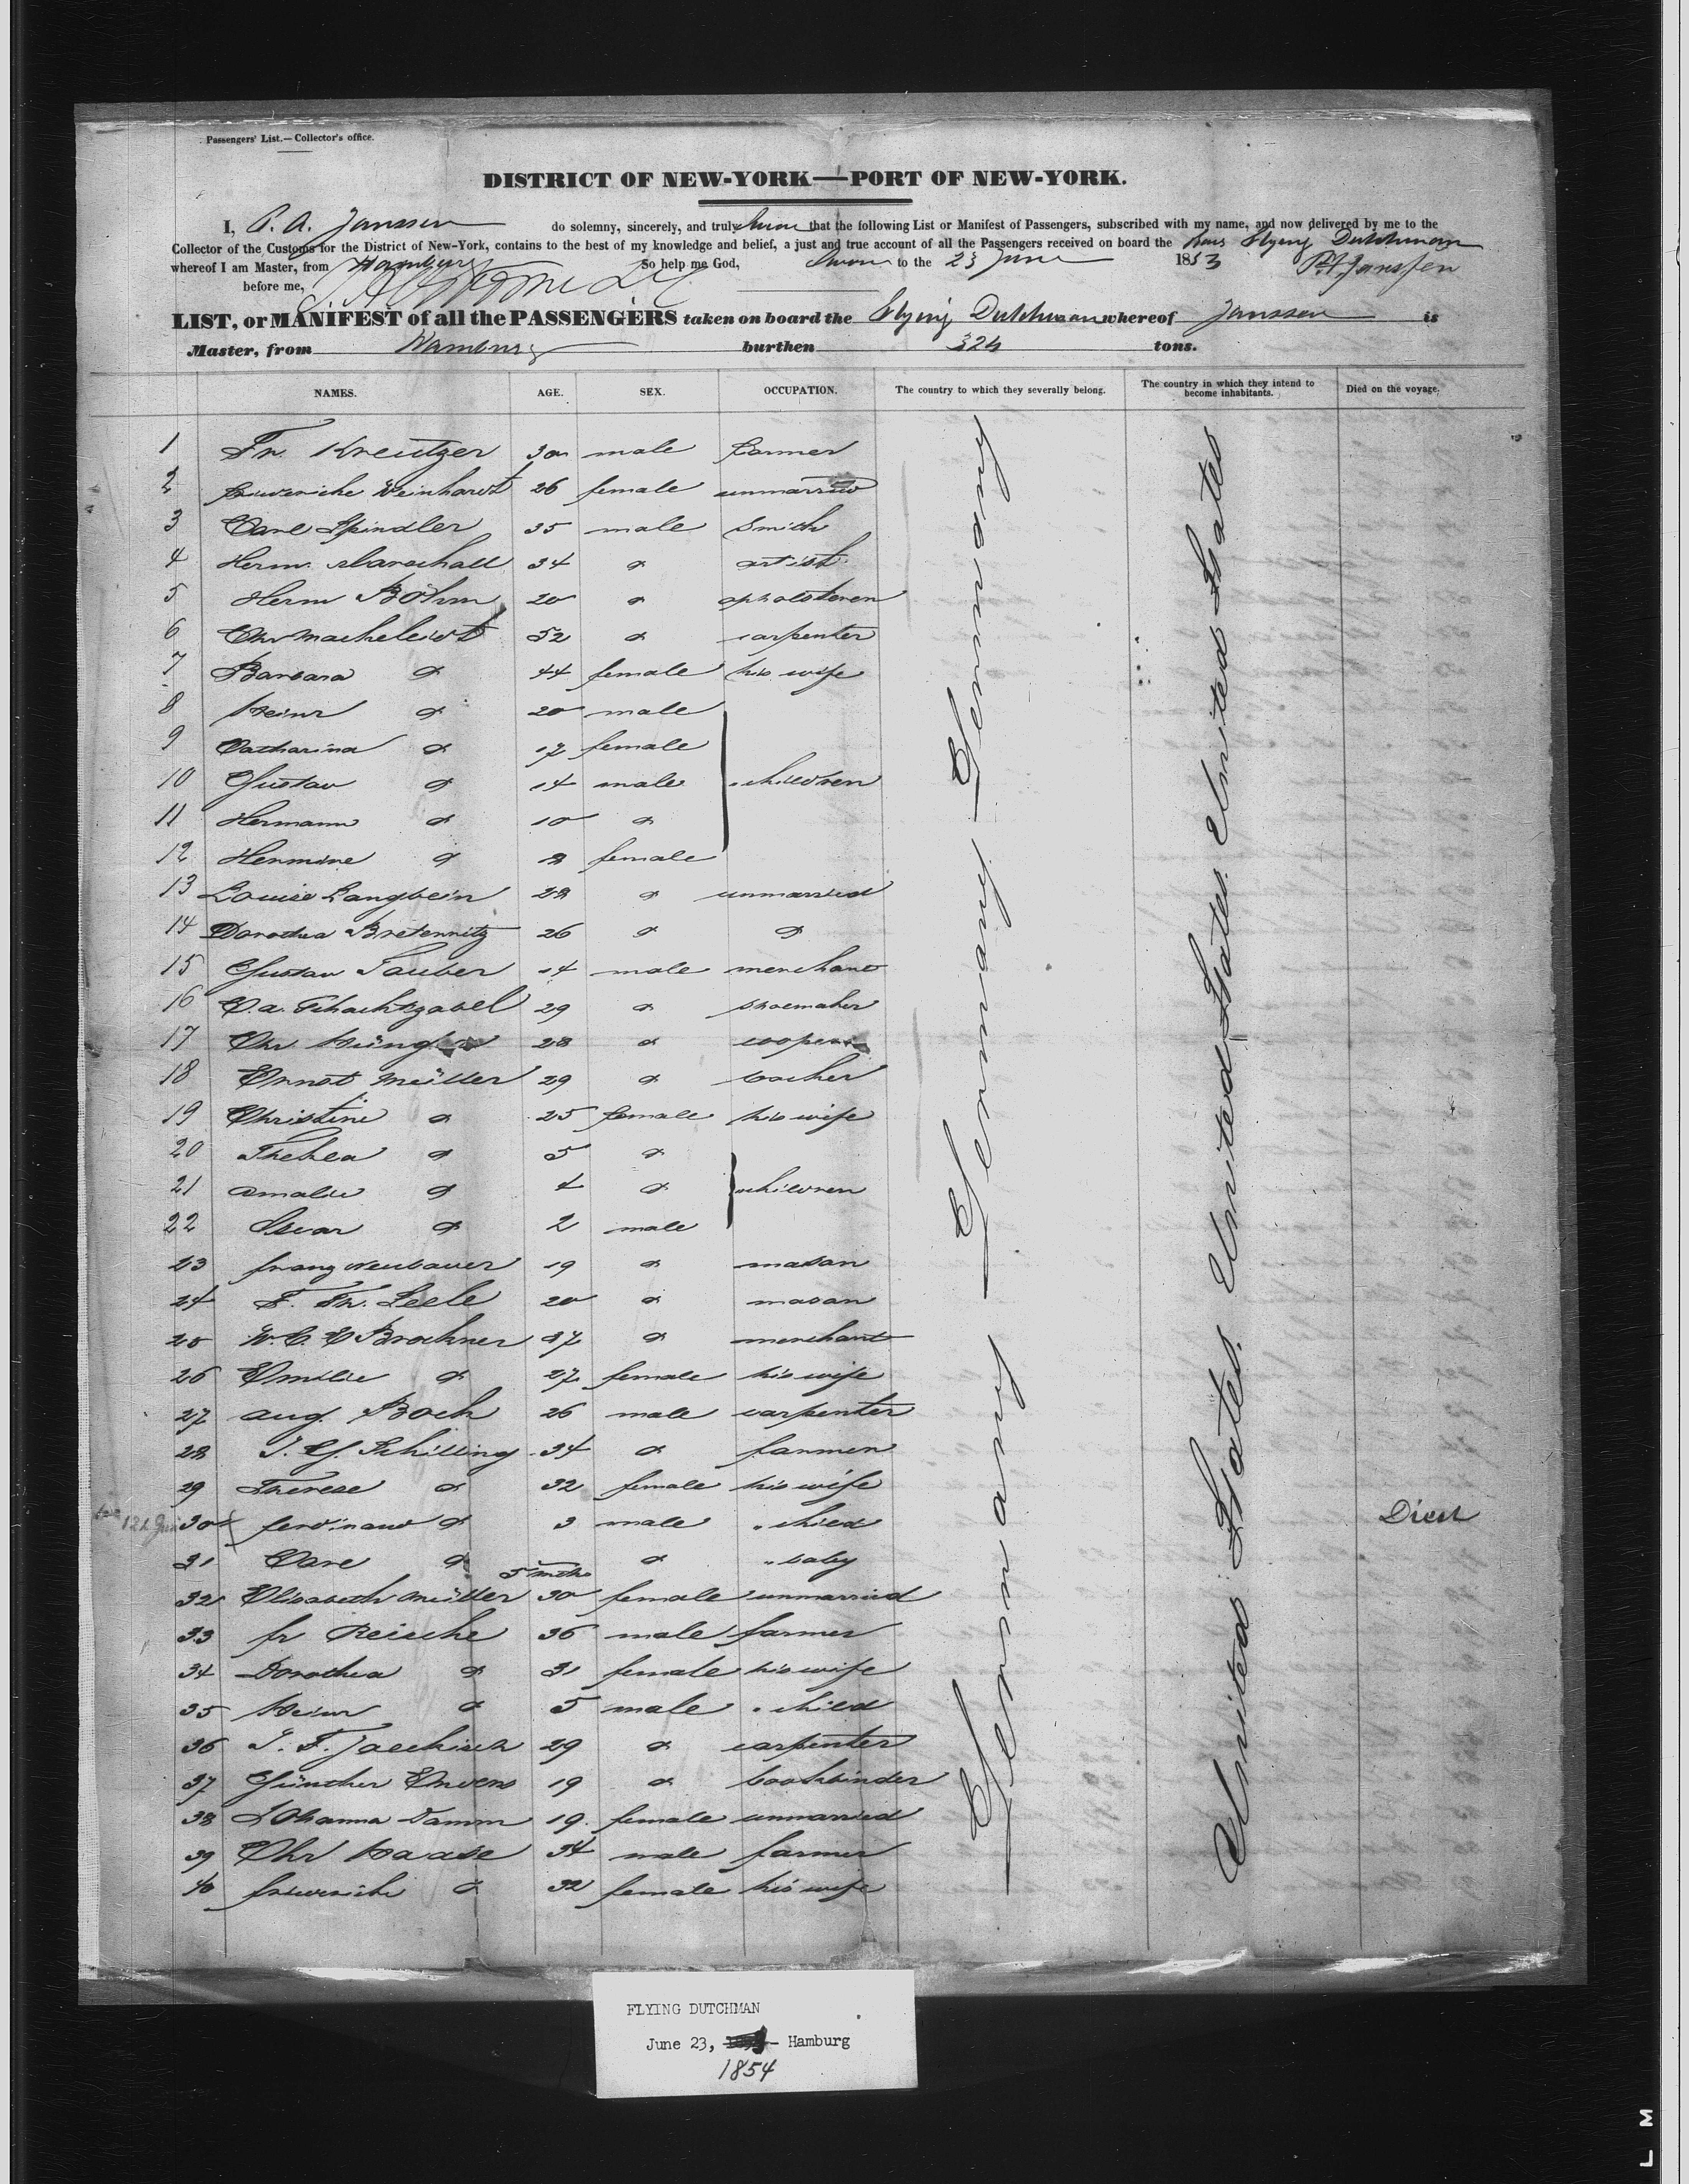 Passengers' List.—Collector's office.
DISTRICT OF NEW-YORK—PORT OF NEW-YORK.
I, P. A. Janssen do solemny, sincerely, and truly swear that the following List or Manifest of Passengers, subscribed with my name, and now delivered by me to the
Collector of the Customs for the District of New-York, contains to the best of my knowledge and belief, a just and true account of all the Passengers received on board the Flying Dutchman
whereof I am Master, from Hamburg So help me God, Sworn to the 23 June 1853 P. A. Janssen
before me,
LIST, or MANIFEST of all the PASSENGERS taken on board the Flying Dutchman whereof Janssen is
Master, from Hamburg burthen 324 tons.
NAMES. AGE. SEX. OCCUPATION. The country to which they severally belong. The country in which they intend to become inhabitants. Died on the voyage.
1 Fr. Kreutzer 30 male farmer
2 Weinhardt 26 female unmarried
3 Carl Spindler 35 male smith
4 Herm. Marschall 34 do artist
5 Herm Böhm 20 do upholsterer
6 Chr Macheleidt 52 do carpenter
7 Barbara do 44 female his wife
8 Heinr do 20 male
9 Catharina do 17 female
10 Gustav do 14 male children
11 Hermann do 10 do
12 Hermine do 8 female
13 Louise Langbein 28 do unmarried
14 Dorothea Breternitz 26 do do
15 Gustav Tauber 14 male merchant
16 C. A. Schachtzabel 29 do shoemaker
17 Chr 28 do cooper
18 Ernst Müller 29 do
19 Christine do 25 female his wife
20 Thekea do 5 do
21 Amalie do 4 do children
22 Oscar do 2 male
23 Franz Neubauer 19 do mason
24 F. Fr. Leele 20 do mason
25 W. C. E Brockner 37 do merchant
26 Emilie do 27 female his wife
27 Aug. Bock 26 male carpenter
28 J. G. Schilling 34 do farmer
29 Therese do 32 female his wife
30 Ferdinand do 3 male child Died
31 Carl do 5 mths do baby
32 Elisabeth Müller 30 female unmarried
33 Fr Reische 36 male farmer
34 Dorothea do 31 female his wife
35 Heinr do 5 male child
36 J. F. Jaechisch 29 do carpenter
37 Günther 19 do bookbinder
38 Johanna Damm 19 female unmarried
39 Chr Haase 34 male farmer
40 Friederike do 32 female his wife
Germany Germany Germany
United States United States United States
FLYING DUTCHMAN
June 23, Hamburg
1854
L M